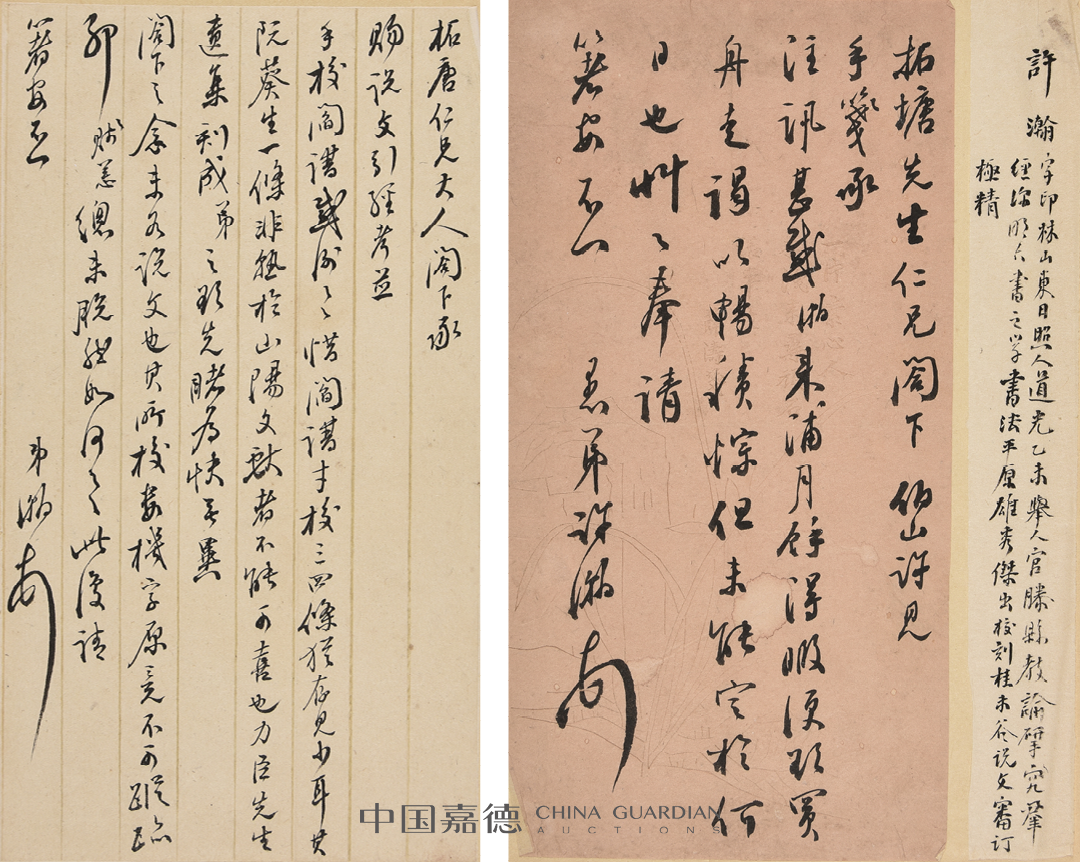 許瀚 字印林山東日照人道光乙未舉人官滕縣教諭研究羣
經深明六書之學書法平原雄秀傑出校刻桂未谷說文審訂
極精
柘塘先生仁兄閣下 伯山訴見
手箋承
注訊甚感瀚来浦月餘得暇便欲買
舟走謁以暢積悰但未能定於何
日也艸艸奉請
箸安不一 愚弟許瀚頓
柘唐仁兄大人閣下承
賜說文引經考並
手校閻譜感謝之惜閻譜手校三四條猶存見少耳其
阮葵生一條非熟於山陽文獻者不能可喜也力臣先生
遺集刻成弟之欲先睹為快無異
閣下之念未谷說文也其所校婁機字原竟不可蹤跡
邪 賤恙總未脫體如何之此復請
箸安不一
弟瀚頓
中国嘉德 CHINA GUARDIAN
AUCTIONS